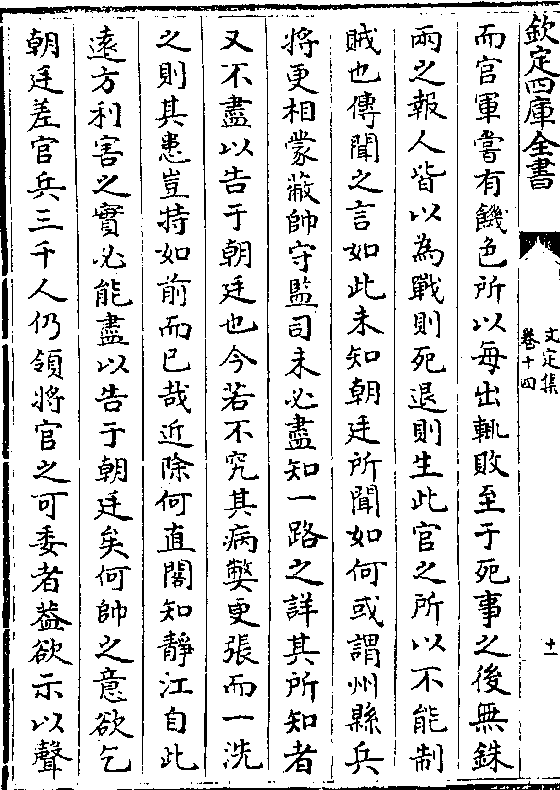 欽定四庫全書
文定集
卷十四
十一
而官軍嘗有饑色所以每出輒敗至于死事之後無銖
兩之報人皆以為戰則死退則生此官之所以不能制
賊也傳聞之言如此未知朝廷所聞如何或謂州縣兵
將更相蒙蔽帥守監司未必盡知一路之詳其所知者
又不盡以告于朝廷也今若不究其病弊更張而一洗
之則其患豈持如前而已哉近除何直閣知靜江自此
遠方利害之實必能盡以告于朝廷矣何帥之意欲乞
朝廷差官兵三千人仍領將官之可委者葢欲示以聲